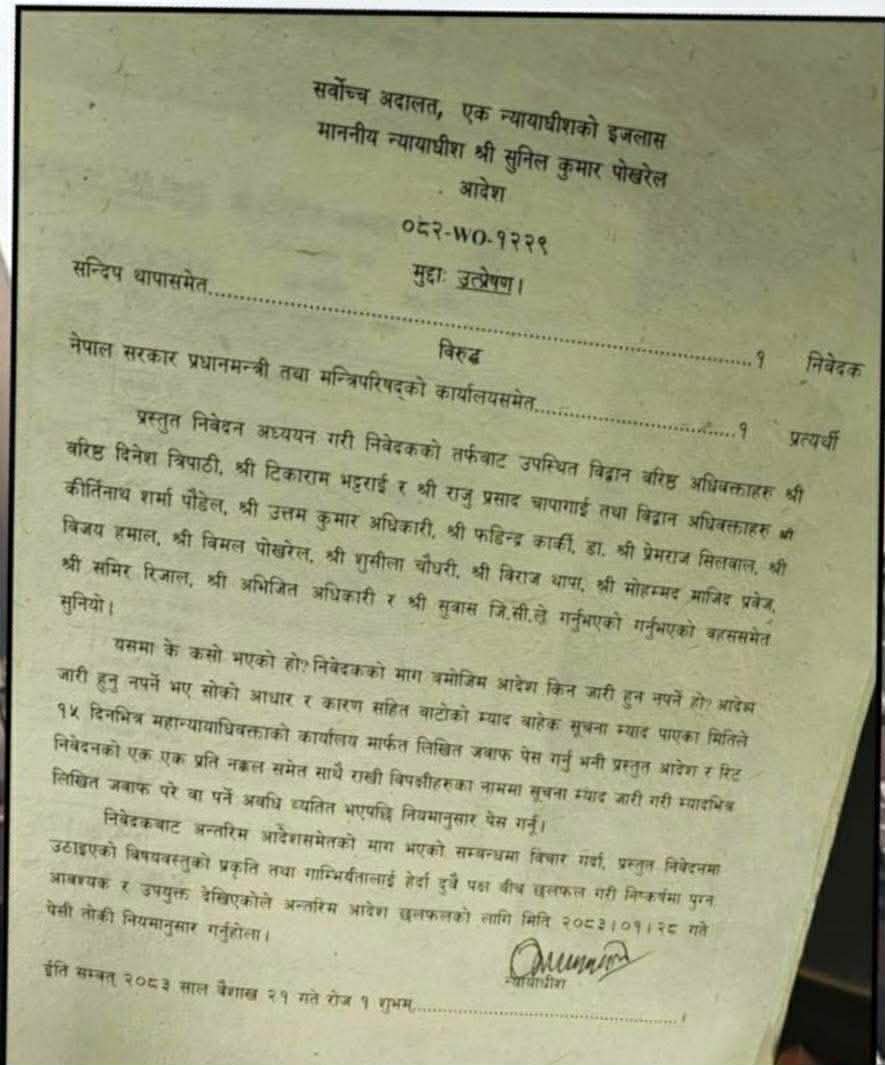 सर्वोच्च अदालत, एक न्यायाधीशको इजलास
माननीय न्यायाधीश श्री सुनिल कुमार पोखरेल
आदेश
०८२-WO-१२२९
मुद्दाः उत्प्रेषण।
सन्दिप थापासमेत..........१ निवेदक
विरुद्ध
नेपाल सरकार प्रधानमन्त्री तथा मन्त्रिपरिषद्को कार्यालयसमेत..........१ प्रत्यर्थी
प्रस्तुत निवेदन अध्ययन गरी निवेदकको तर्फबाट उपस्थित विद्वान वरिष्ठ अधिवक्ताहरु श्री
वरिष्ठ दिनेश त्रिपाठी, श्री टिकाराम भट्टराई र श्री राजु प्रसाद चापागाई तथा विद्वान अधिवक्ताहरु श्री
कीर्तिनाथ शर्मा पौडेल, श्री उत्तम कुमार अधिकारी, श्री फडिन्द्र कार्की, डा. श्री प्रेमराज सिलवाल, श्री
विजय हमाल, श्री विमल पोखरेल, श्री शुसीला चौधरी, श्री विराज थापा, श्री मोहम्मद माजिद प्रवेज,
श्री समिर रिजाल, श्री अभिजित अधिकारी र श्री सुवास जि.सी.ले गर्नुभएको गर्नुभएको वहससमेत
सुनियो।
यसमा के कसो भएको हो? निवेदकको माग बमोजिम आदेश किन जारी हुन नपर्ने हो? आदेश
जारी हुनु नपर्ने भए सोको आधार र कारण सहित बाटोको म्याद बाहेक सूचना म्याद पाएका मितिले
१५ दिनभित्र महान्यायाधिवक्ताको कार्यालय मार्फत लिखित जवाफ पेस गर्नु भनी प्रस्तुत आदेश र रिट
निवेदनको एक एक प्रति नक्कल समेत साथै राखी विपक्षीहरुका नाममा सूचना म्याद जारी गरी म्यादभित्र
लिखित जवाफ परे वा पर्ने अवधि व्यतित भएपछि नियमानुसार पेस गर्नू।
निवेदकबाट अन्तरिम आदेशसमेतको माग भएको सम्बन्धमा विचार गर्दा, प्रस्तुत निवेदनमा
उठाइएको विषयवस्तुको प्रकृति तथा गाम्भिर्यतालाई हेर्दा दुवै पक्ष बीच छलफल गरी निष्कर्षमा पुग्न
आवश्यक र उपयुक्त देखिएकोले अन्तरिम आदेश छलफलको लागि मिति २०८३।०१।२८ गते
पेसी तोकी नियमानुसार गर्नुहोला।
न्यायाधीश
ईति सम्वत् २०८३ साल बैशाख २१ गते रोज १ शुभम्..........।